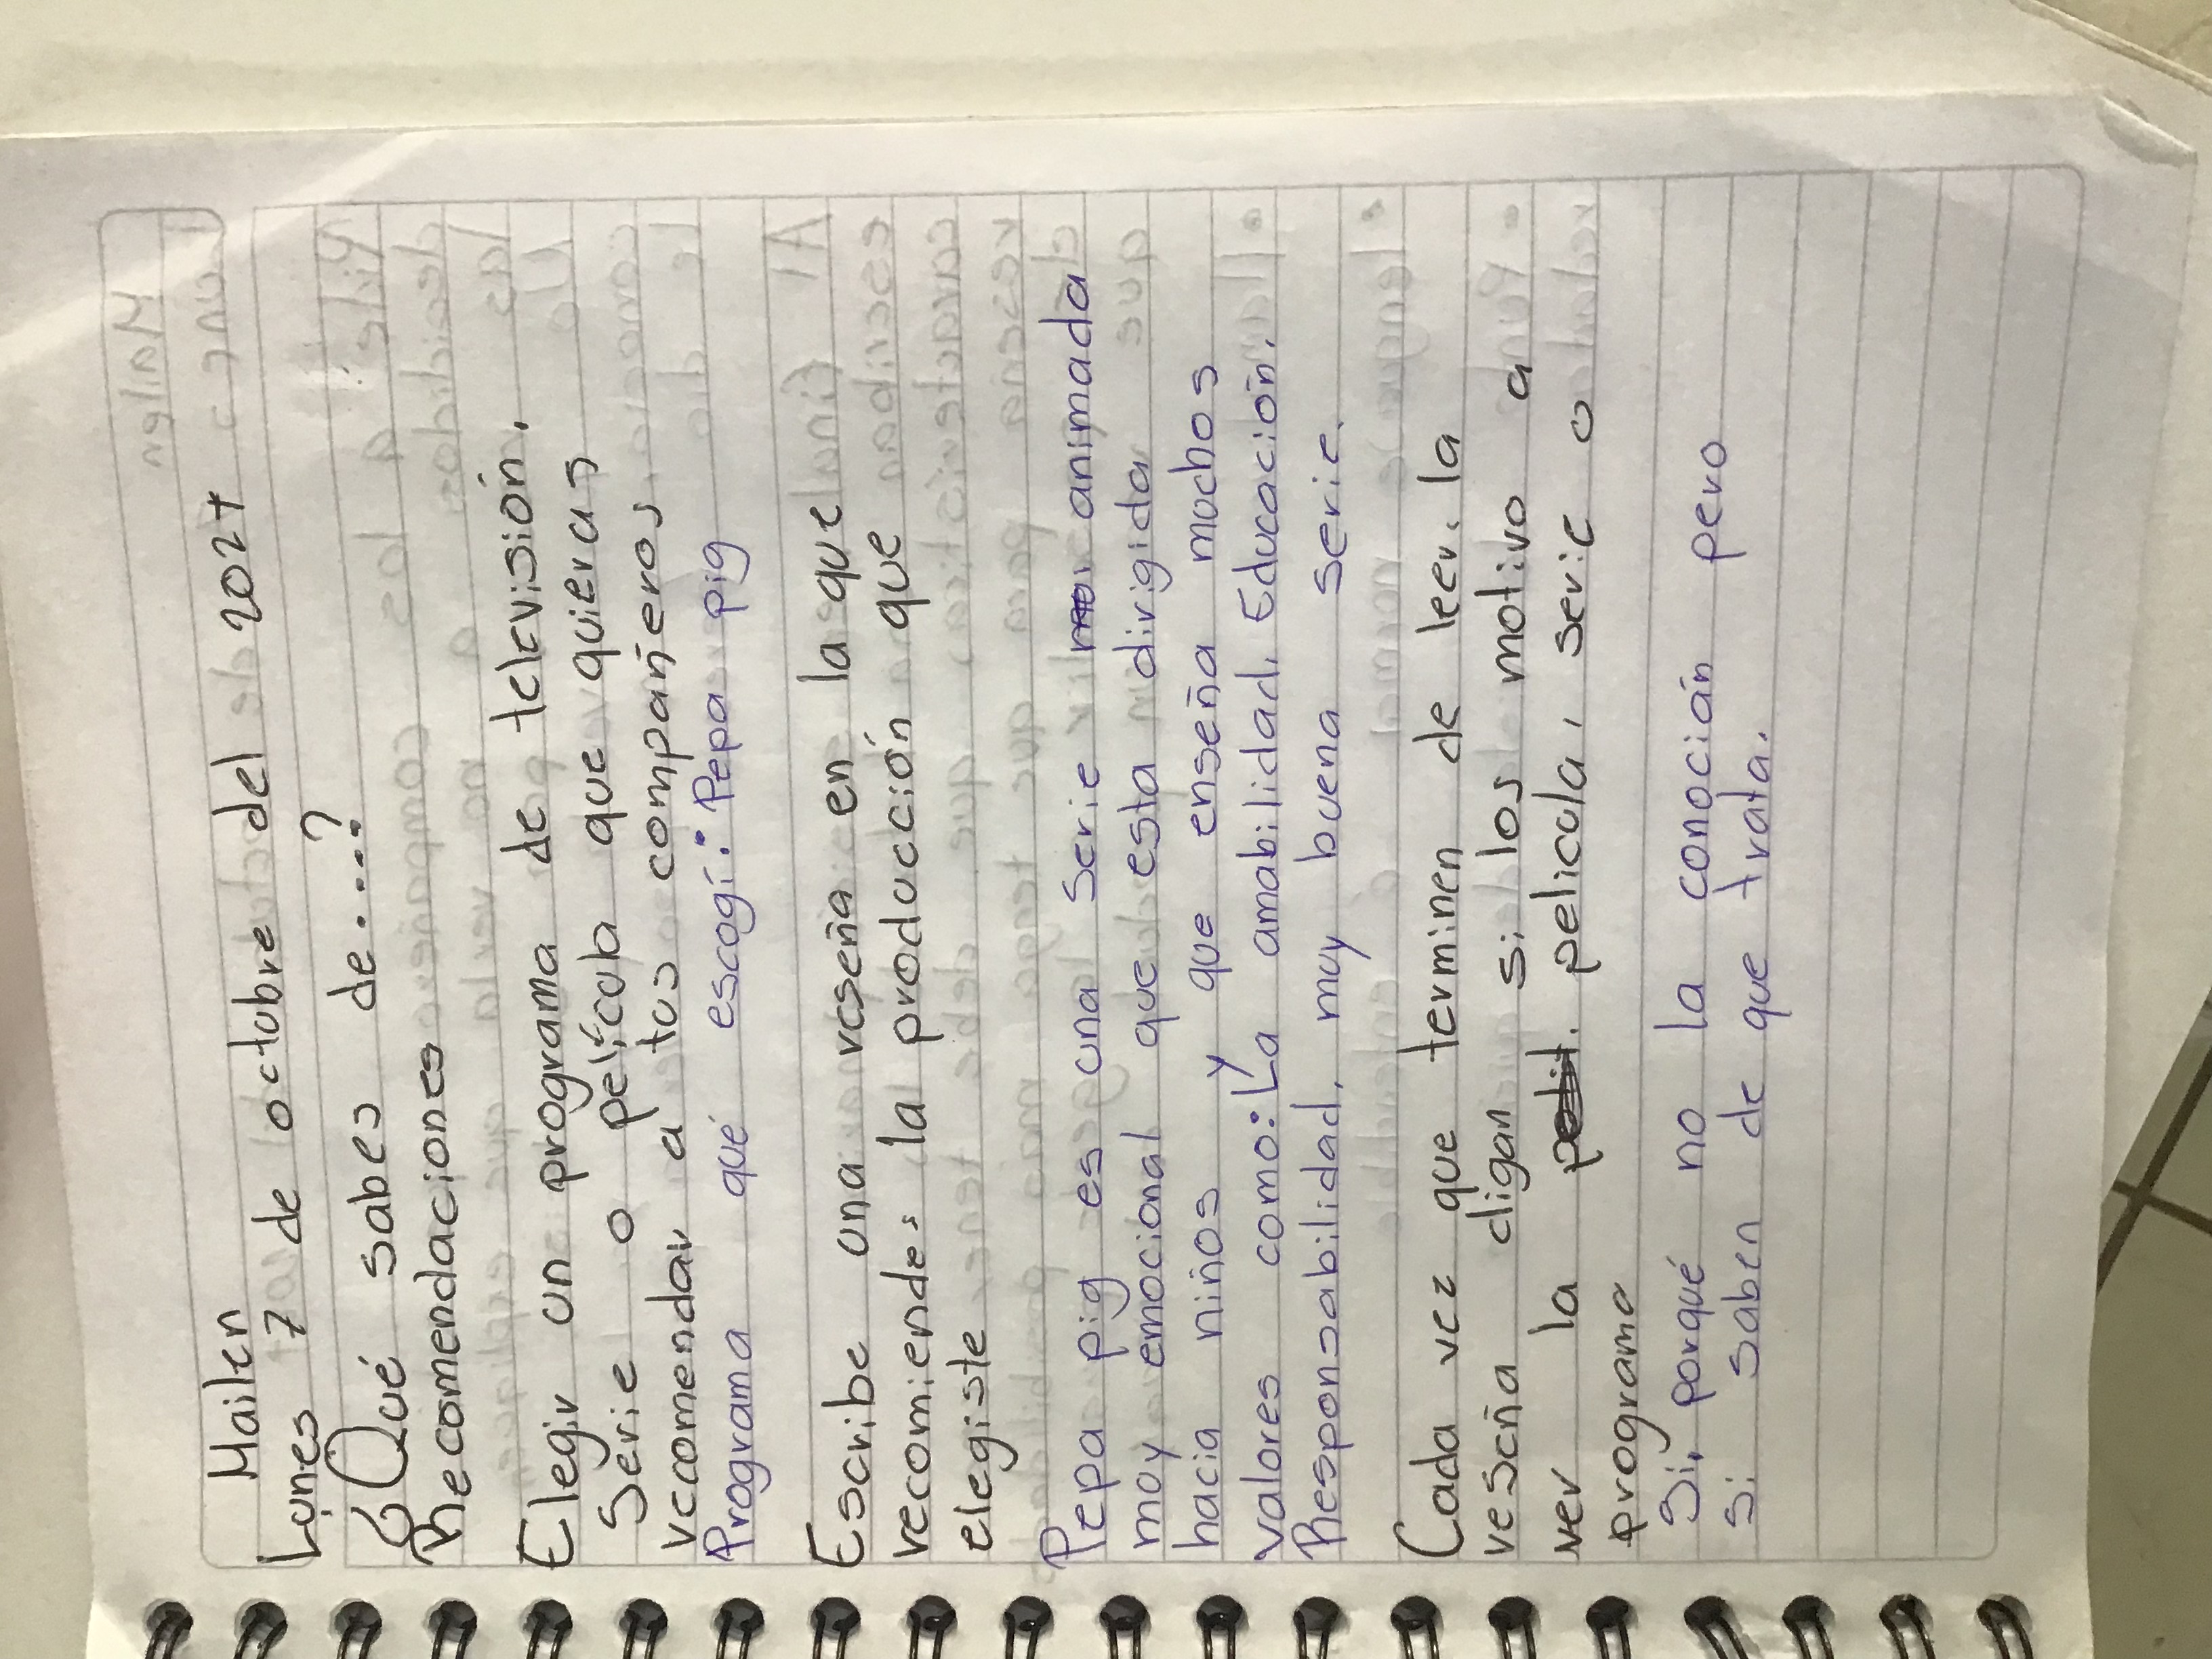 Mailen
Lunes 7 de octubre del 2024
¿Qué sabes de....?
Recomendaciones
Elegir un programa de televisión,
Serie o película que quieras
recomendar a tus compañeros
Programa qué escogí: Pepa pig
Escribe una reseña en la que
recomiendes la producción que
elegiste
Pepa pig es una serie animada
moy emocional que esta dirigida
hacia niños y que enseña muchos
valores como: La amabilidad, Educación,
Responsabilidad, muy buena serie.
Cada vez que terminen de leer la
reseña digan si los motivo a
ver la pelicula, serie o
programa
Si, porqué no la conocián pero
si saben de que trata.